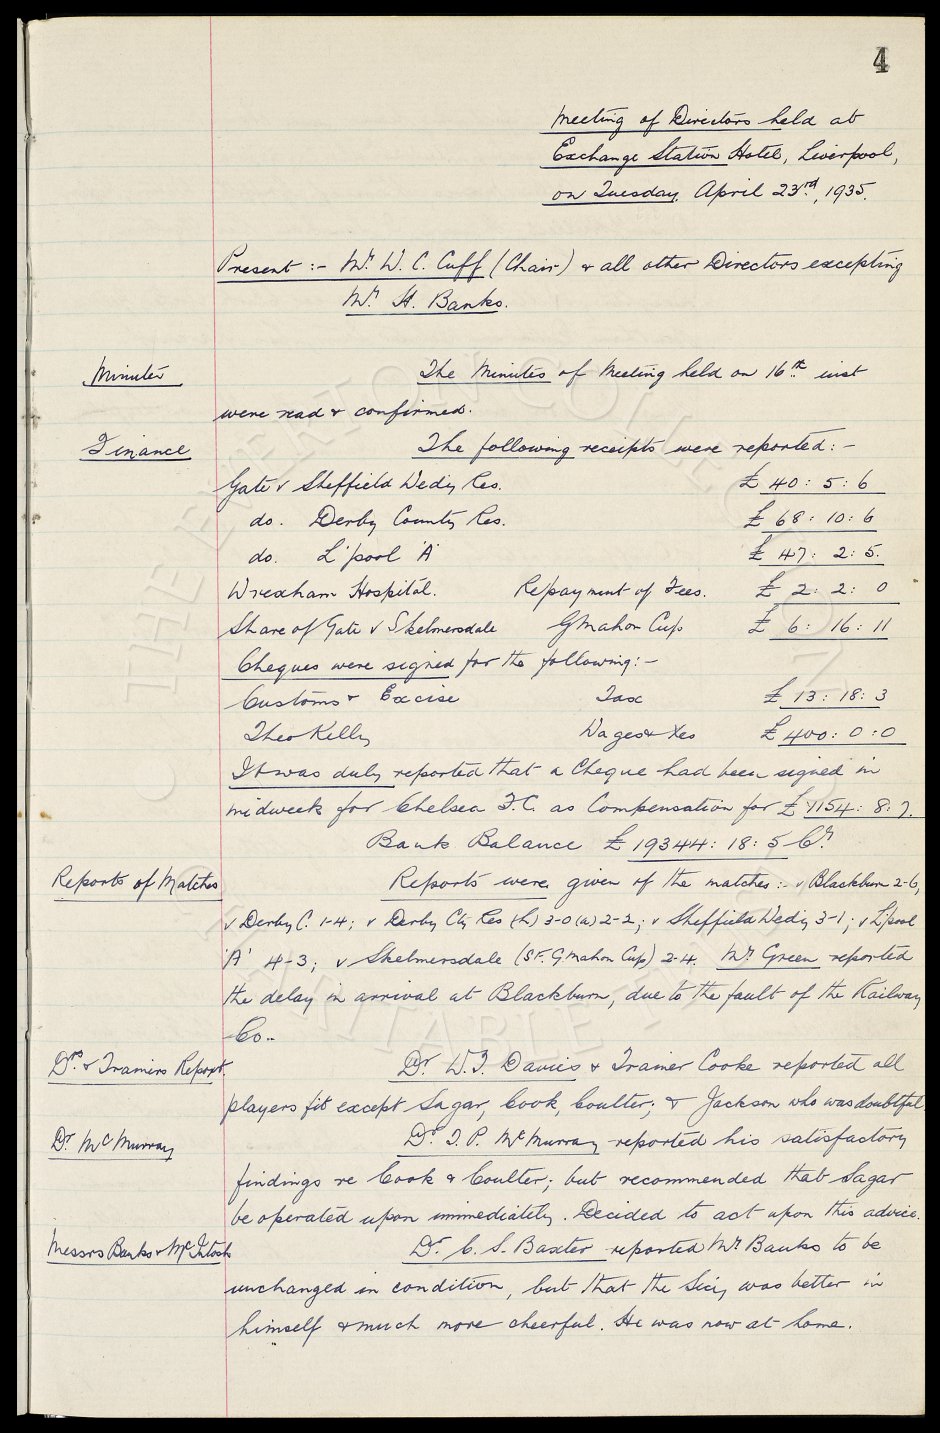 4
Meeting of Directors held at
Exchange Station Hotel, Liverpool,
on Tuesday, April 23rd, 1935.
Present :- Mr. W. C. Cuff (Chair) & all other Directors excepting
Mr. H. Banks.
Minutes The Minutes of Meeting held on 16th. inst
were read & confirmed.
Finance The following receipts were reported:-
Gate v Sheffield Wedy Res. £ 40 : 5 : 6
do. Derby County Res. £ 68 : 10 : 6
do. L'pool 'A' £ 47 : 2 : 5.
Wrexham Hospital. Repayment of Fees. £ 2 : 2 : 0
Share of Gate v Skelmersdale G Mahon Cup £ 6 : 16 : 11
Cheques were signed for the following:-
Customs & Excise Tax £ 13 : 18 : 3
Theo Kelly Wages & Xes £ 400 : 0 : 0
It was duly reported that a Cheque had been signed in
midweek for Chelsea F.C. as Compensation for £ 1154 : 8 : 7.
Bank Balance £ 19344 : 18 : 5 Cr.
Reports of Matches Reports were given of the matches :- v Blackburn 2-6,
v Derby C. 1-4; v Derby Cty Res (h) 3-0 (a) 2-2; v Sheffield Wedy 3-1; v L'pool
'A' 4-3; v Skelmersdale (SF. G. Mahon Cup) 2-4. Mr. Green reported
the delay in arrival at Blackburn, due to the fault of the Railway
Co..
Drs. & Trainers Report. Dr. W. J. Davies & Trainer Cooke reported all
players fit except Sagar, Cook, Coulter; & Jackson who was doubtful
Dr. McMurray Dr. T. P. McMurray reported his satisfactory
findings re Cook & Coulter; but recommended that Sagar
be operated upon immediately. Decided to act upon this advice.
Messrs Banks & McIntosh Dr. C. S. Baxter reported Mr. Banks to be
unchanged in condition, but that the Secy was better in
himself & much more cheerful. He was now at home.
THE EVERTON COLLECTION
CHARITABLE TRUST